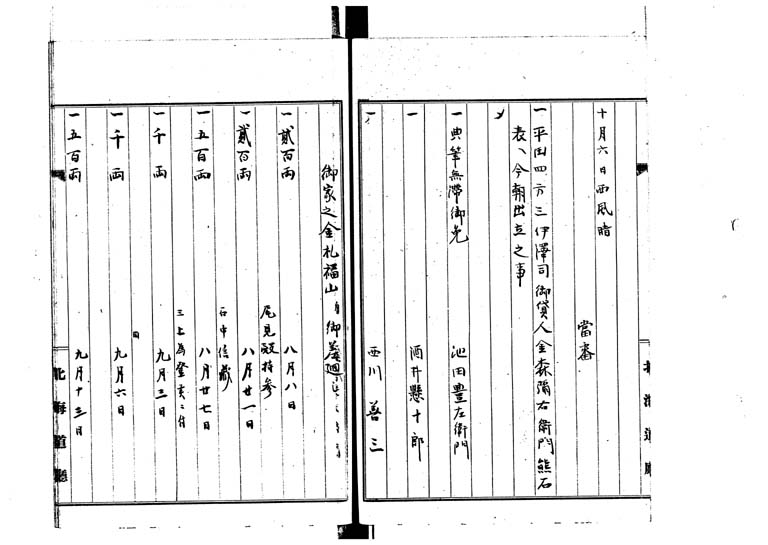 十月六日西風晴
當番
一平田四方三伊澤司御貸人金森彌右衛門熊石
表へ今朝出立之事
〆
一典筆無滞御免
池田豊左衛門
一
酒井懸十郎
一
西川善三
御家之金札福山
一貳百両
八月八日
尾見殿持参
一貳百両
八月廿一日
石中信蔵
一五百両
八月廿七日
三上為登
一千両
九月三日
一千両
同
九月六日
一五百両
九月十三日
北海道廳
北海道廳